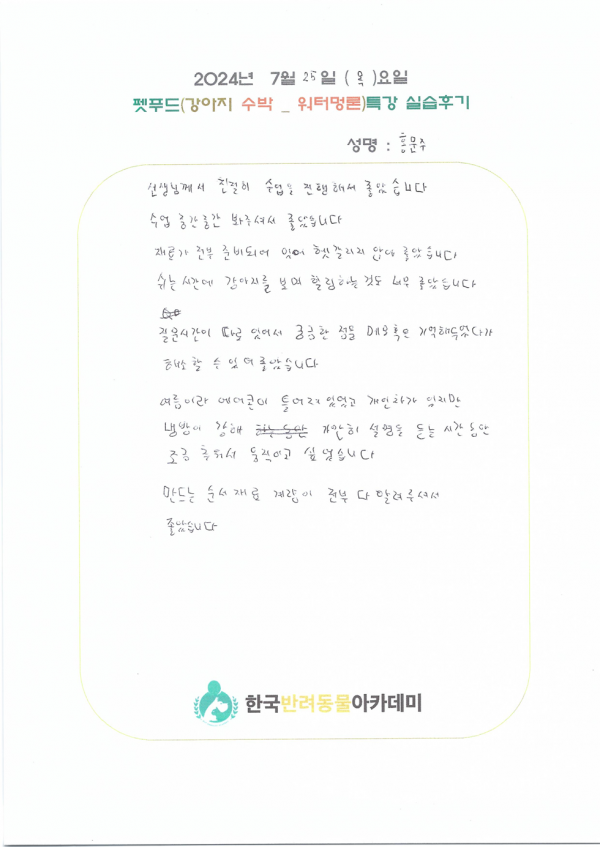 2024년 7월 25일 (목)요일
펫푸드(강아지 수박 _ 워터멍론)특강 실습후기
성명 : 홍문주
선생님께서 친절히 수업을 진행해서 좋았습니다
수업 중간중간 봐주셔서 좋았습니다
재료가 전부 준비되어 있어 헷갈리지 않아 좋았습니다
쉬는시간에 강아지를 보며 힐링하는것도 너무 좋았습니다
질문시간이 따로 있어서 궁금한 점을 메모혹은 기억해두었다가
해소할 수 있어 좋았습니다
여름이라 에어컨이 틀어져있었고 개인차가 있지만
냉방이 강해 가만히 설명을 듣는 시간동안
조금 추워서 움직이고 싶었습니다
만드는 순서 재료 계량이 전부 다 알려주셔서
좋았습니다
한국반려동물아카데미